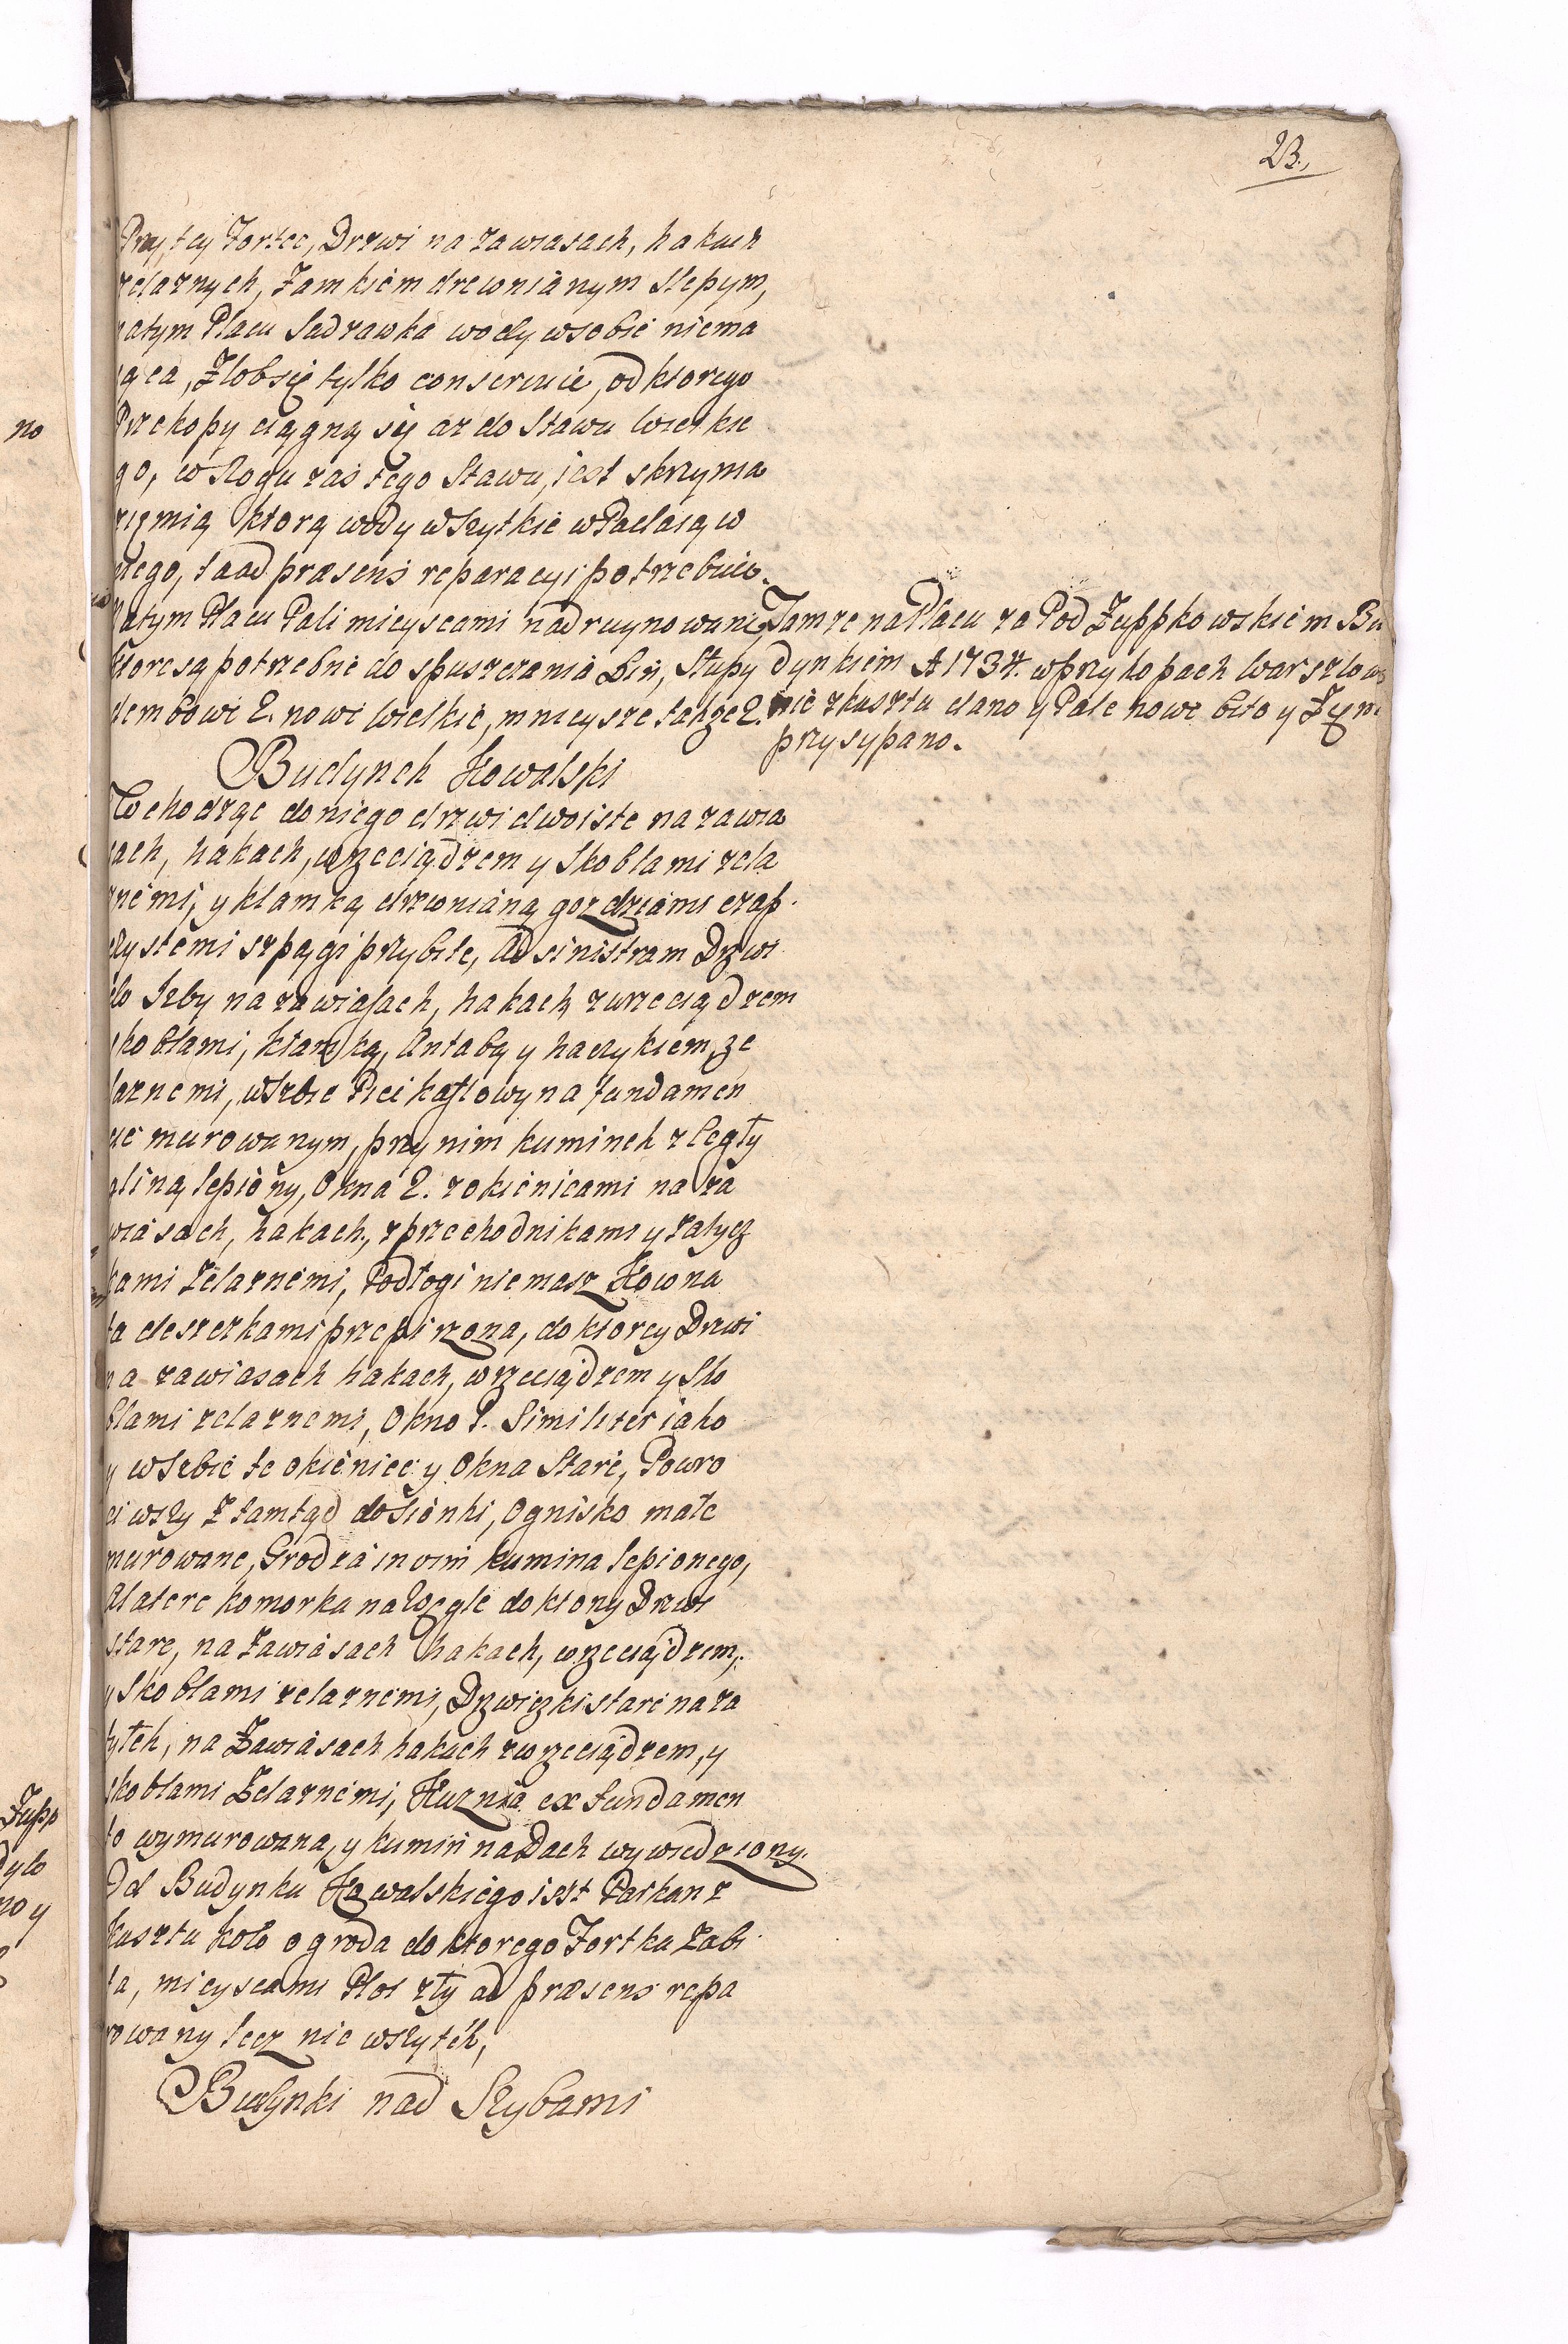 23.
Przy tey Fortce, Drzwi na zawiasach, hakach
zelaznych, Zamkiem drewnianym slepym,
natym Placu Sadzawka wody wsobie niema
iąca, Złobsię tylko conserwuie, od ktorego
Przekopy ciągną się az do Stawu Wielkie
go, w Rogu zas tego Stawu, iest skrzynia
ziemią ktorą wody wszytkie wPadaią w
niego, ta ad præsens reparacyi potrzebuie.
Natym Placu Pali mieyscami nadruynowanie
ktore są potrzebne do spuszczania Lin, Słupy
dembowi 2. nowi wielkie, mnieysze także 2.
Tamze na Placu za Pod Zuppkowskiem Bu
dynkiem A 1737. w przykopach Warszlow
nie zkusztu dano y Pale nowe bito y Zięmi
przysypano.
Budynek Kowalski
Wchodząc do niego drzwi dwoiste na zawia
sach, hakach, wrzeciądzem y Skoblami zela
znemi, y klamką drzewnianą gozdziami czap
czystemi szpągi przybite, Ad sinistram Drzwi
do Izby na zawiasach, hakach zwrzeciądzem
skoblami, klamką, Antabą y haczykiem, ze
laznemi, wIzbie Piei kaflowy na fundamen
cie murowanym, przy nim kuminek z Cegły
gliną lepiony, Okna 2. zokienicami na za
wiasach, hakach, zprzechodnikami y zatycz
kami zelaznemi, Podłogi niemasz Kowna
ta deszczkami przepirzona, do ktorey Drzwi
na zawiasach hakach, wrzeciądzem y Sko
blami zelaznemi, Okno 1. Similiter iako
y wIzbie te okienice y Okna Stare, Powro
ciwszy Ztamtąd do sionki, Ognisko małe
murowane, Grodza in vim kumina lepionego,
A latere komorka na Węgle do ktory Drzwi
stare, na zawiasach hakach, wrzeciądzem,
y Skoblami zelaznemi, Drzwiczki stare na za
tyłek, na Zawiasach hakach zwrzeciądzem, y
skoblami Zelaznemi, Kuznia ex fundamen
to wymurowana, y kumin na Dach wywiedziony.
Od Budynku Kowalskiego iest Parkan z
kusztu koło ogroda do ktorego Fortka Zabi
ta, mieyscami Płot zły ad præsens repa
rowany lecz nie wszytek,
Budynki nad Szybami
no
Zupp
dylo
no y